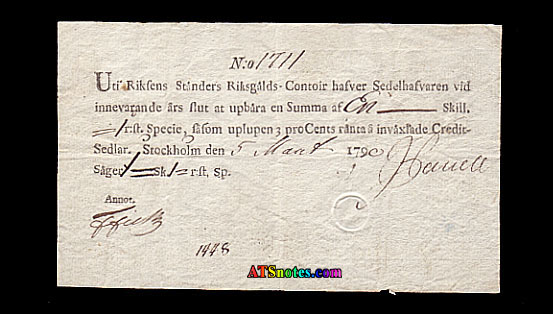 N:o 1711
Uti Riksens Ständers Riksgälds-Contoir hafver Sedelhafvaren vid
innevarande års slut at upbära en Summa af En Skill.
1 r:st. Specie, såsom uplupen 3 proCents ränta å inväxlade Credit-
Sedlar. Stockholm den 5 Mart 1790
Säger 1 Sk. 1 r:st. Sp.
Annot.
1448
ATSnotes.com